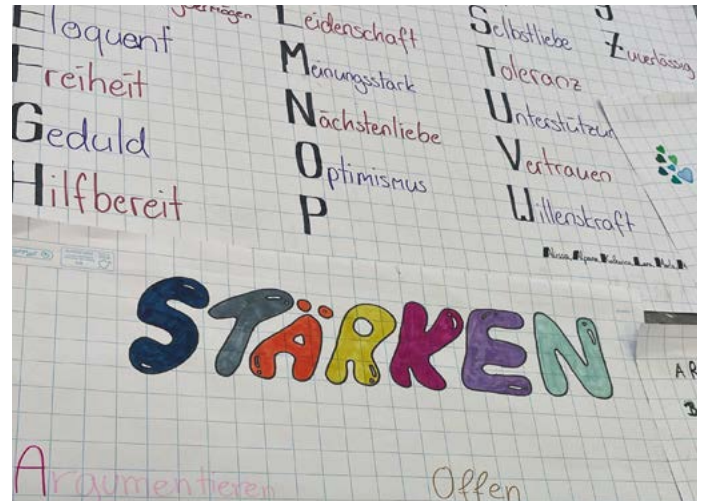 Eloquent
Freiheit
Geduld
Hilfbereit
Leidenschaft
Meinungsstark
Nächstenliebe
Optimismus
P
Selbstliebe
Toleranz
Unterstützun
Vertrauen
Willenskraft
Zuverlässig
STÄRKEN
Argumentieren
Offen